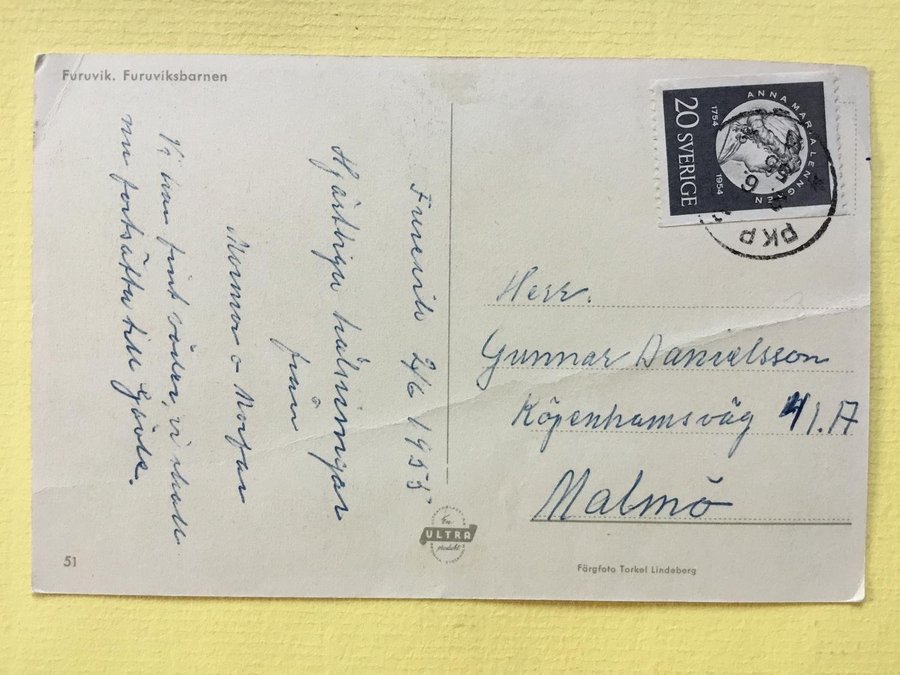 Furuvik. Furuviksbarnen
Furuvik 2/6 1955
Hjärtliga hälsningar
från
Mormor o Morfar
Vi ha fint väder, vi skall
nu fortsätta till Gävle.
20 SVERIGE
1754
1954
ANNA MARIA LENNGREN
PKP
Herr.
Gunnar Danielsson
Köpenhamsväg 41.A
Malmö
En
ULTRA
produkt
51
Färgfoto Torkel Lindeberg